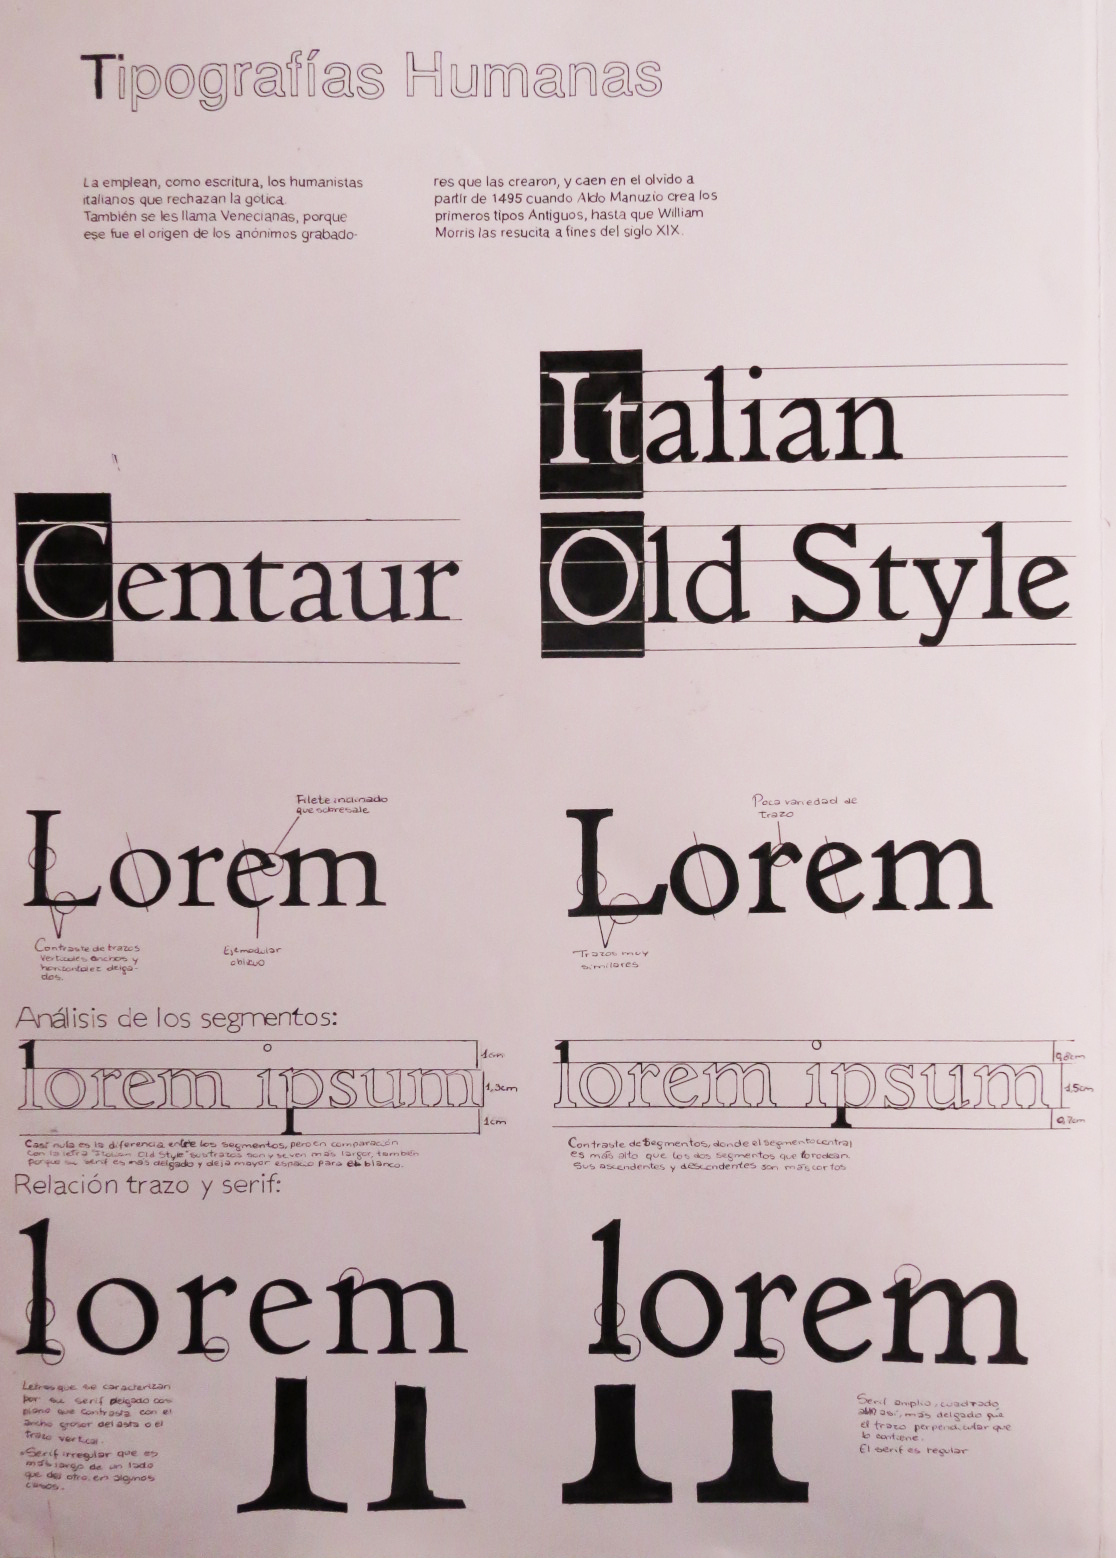 Tipografías Humanas
La emplean, como escritura, los humanistas
italianos que rechazan la gótica.
También se les llama Venecianas, porque
ese fue el origen de los anónimos grabado-
res que las crearon, y caen en el olvido a
partir de 1495 cuando Aldo Manuzio crea los
primeros tipos Antiguos, hasta que William
Morris las resucita a fines del siglo XIX.
Centaur
Italian
Old Style
Filete inclinado
que sobresale
Lorem
Contraste de trazos
verticales anchos y
horizontales delga-
dos.
Eje modular
oblicuo
Poca variedad de
trazo
Lorem
Trazos muy
similares
Análisis de los segmentos:
lorem ipsum
1cm
1,3cm
1cm
Casi nula es la diferencia entre los segmentos, pero en comparación
con la letra "Italian Old Style" sus trazos son y se ven más largos, también
porque su serif es más delgado y deja mayor espacio para el blanco.
lorem ipsum
0,8cm
1,5cm
0,7cm
Contraste de segmentos, donde el segmento central
es más alto que los dos segmentos que lo rodean.
Sus ascendentes y descendentes son más cortos
Relación trazo y serif:
lorem
Letras que se caracterizan
por su serif delgado casi
plano que contrasta con el
ancho grosor del asta o el
trazo vertical.
Serif irregular que es
más largo de un lado
que del otro, en algunos
casos.
lorem
Serif amplio, cuadrado,
aún así, más delgado que
el trazo perpendicular que
lo contiene.
El serif es regular